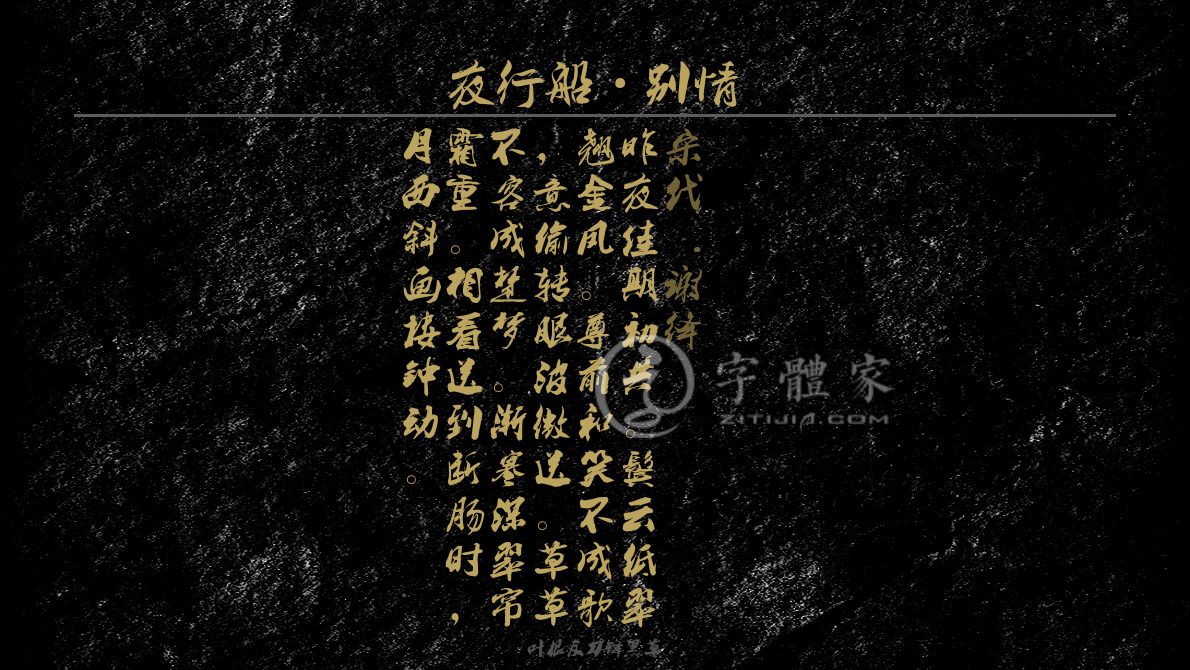 夜行船·别情
宋代.谢绛
昨夜佳期初共。鬓云低翠
翘金凤。尊前和笑不成歌
，意偷转眼波微送。草草
不容成楚梦。渐寒深翠帘
霜重。相看送到断肠时，
月西斜画楼钟动。
字體家
ZITIJIA.COM
叶根友刀锋黑草